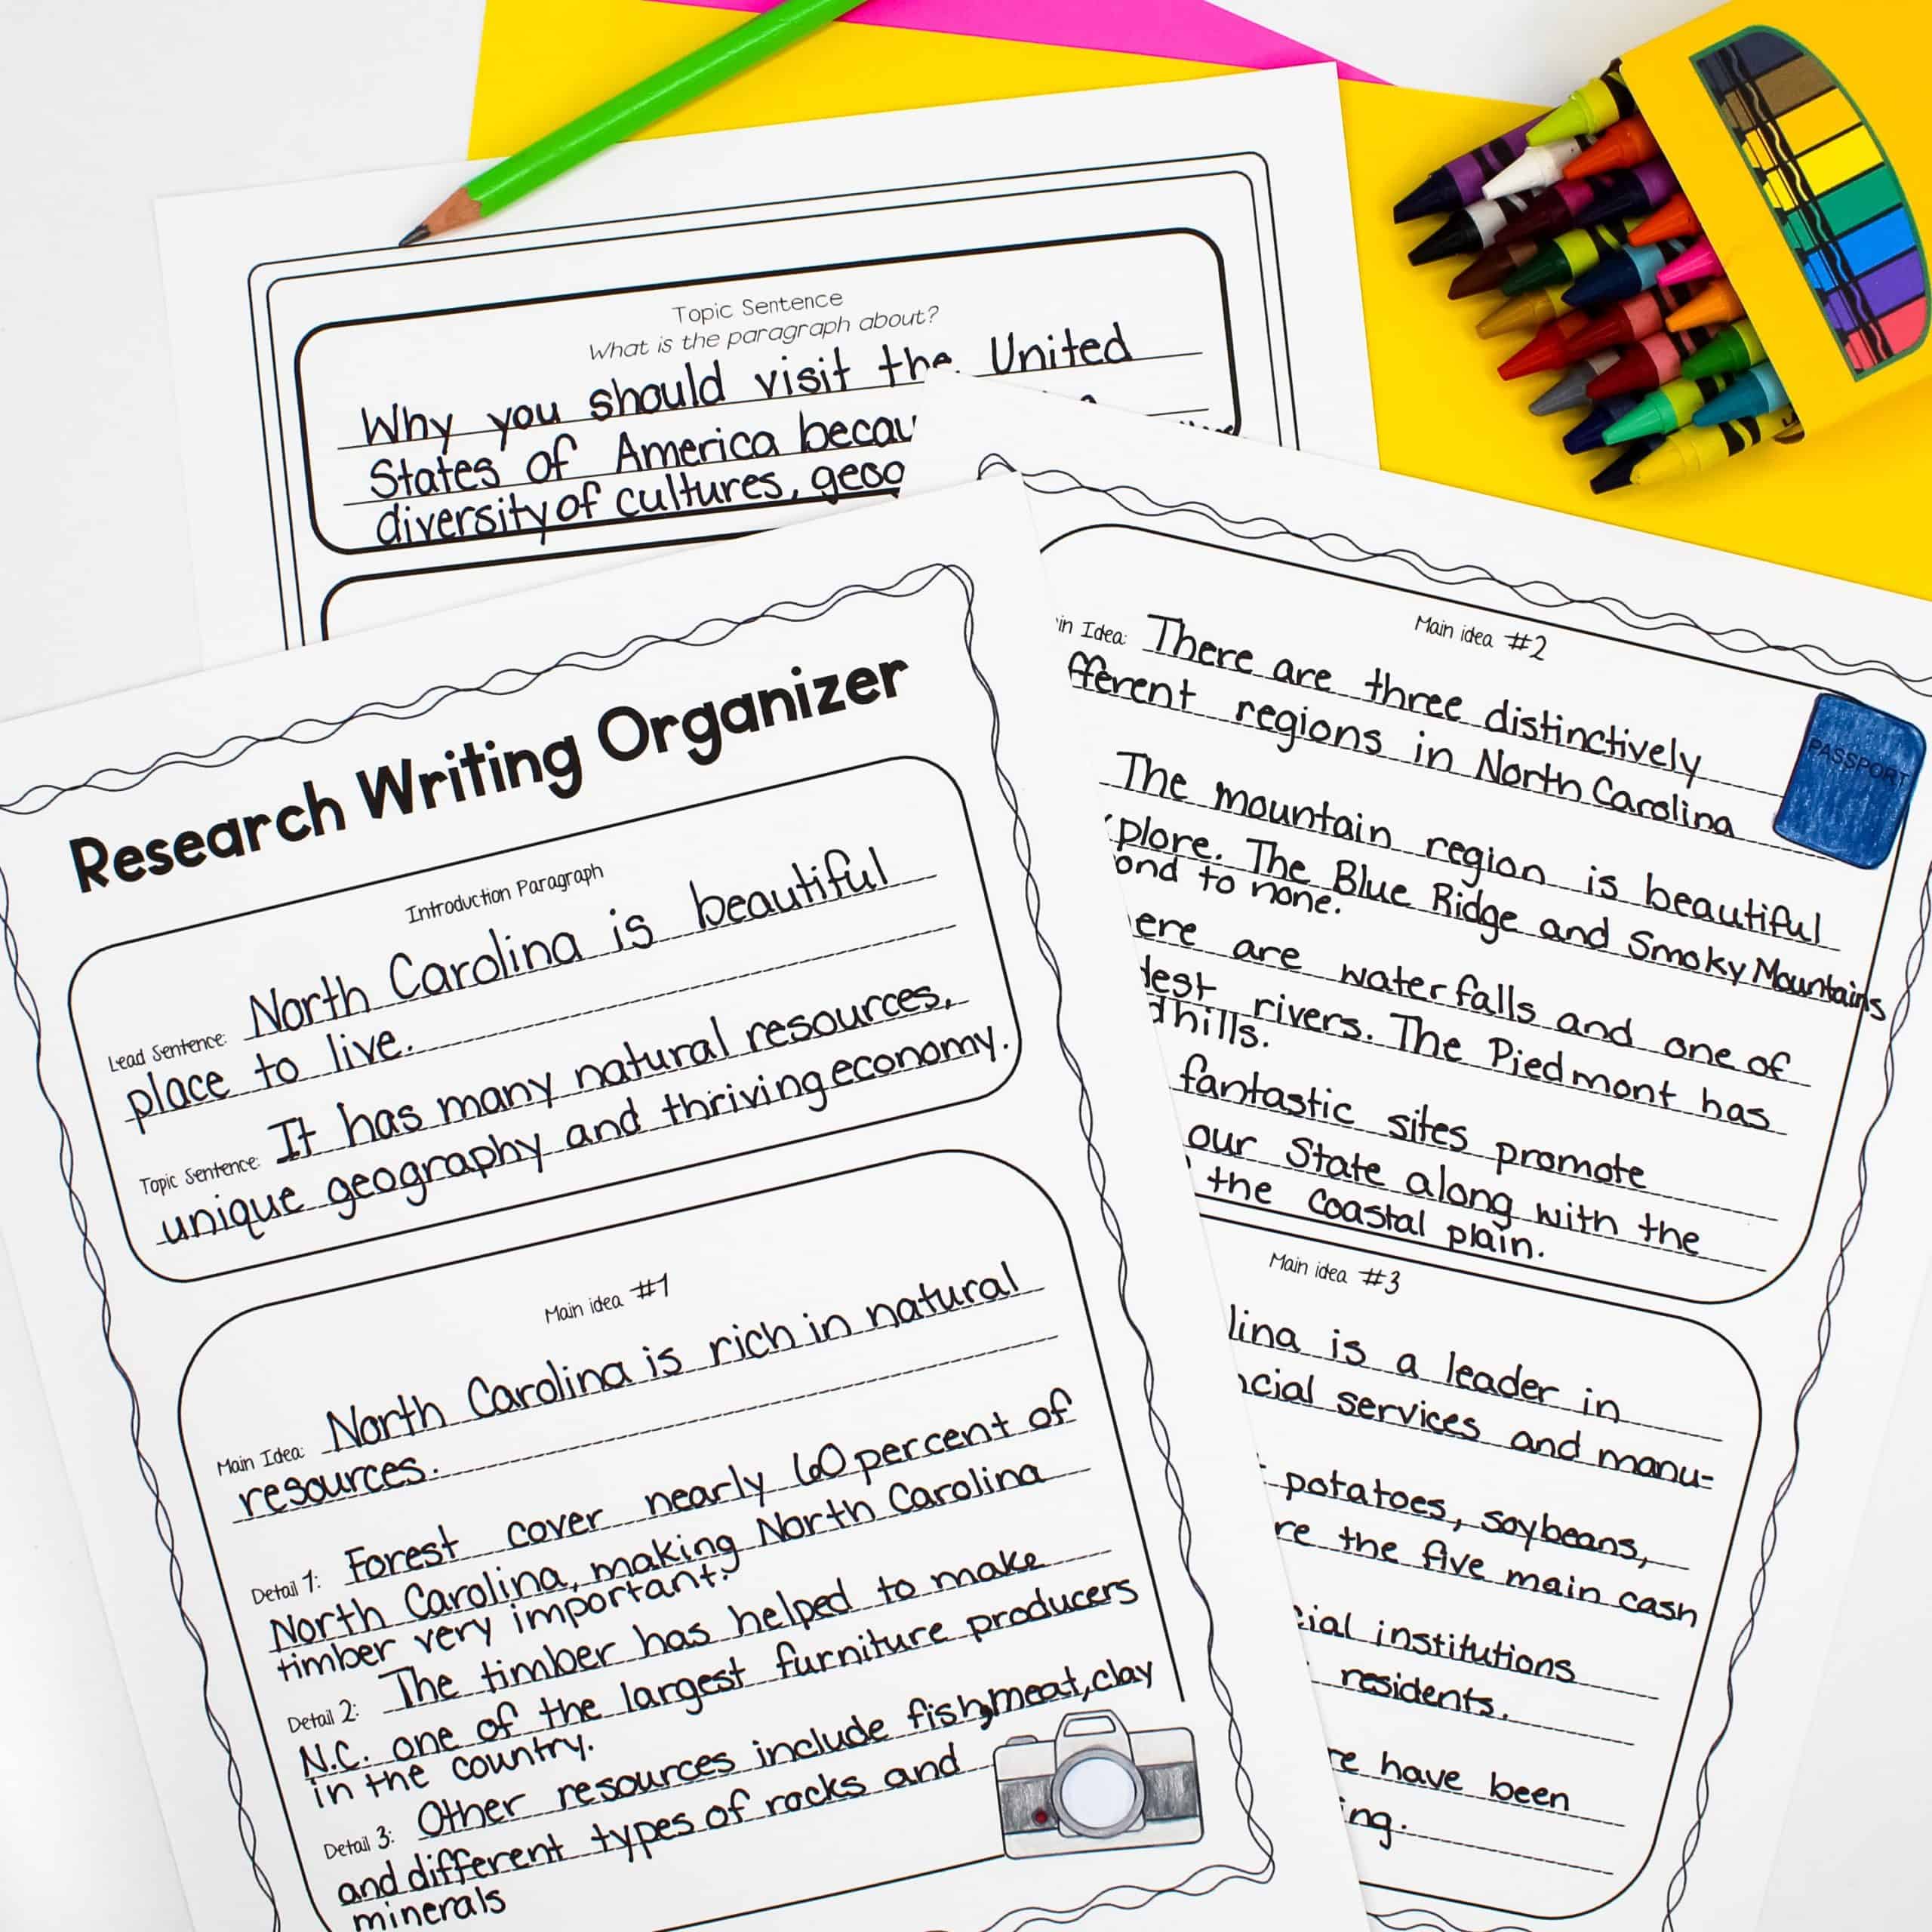 Topic Sentence
What is the paragraph about?
Why you should visit the United
States of America
diversity of cultures,
Research Writing Organizer
Introduction Paragraph
Lead Sentence: North Carolina is beautiful
place to live.
Topic Sentence: It has many natural resources,
unique geography and thriving economy.
Main idea #1
Main Idea: North Carolina is rich in natural
resources.
Detail 1: Forest cover nearly 60 percent of
North Carolina, making North Carolina
timber very important.
Detail 2: The timber has helped to make
N.C. one of the largest furniture producers
in the country.
Detail 3: Other resources include fish, meat, clay
and different types of rocks and
minerals
Main idea #2
Idea: There are three distinctively
regions in North Carolina
PASSPORT
The mountain region is beautiful
The Blue Ridge and Smoky Mountains
to none.
are waterfalls and one of
rivers. The Piedmont has
fantastic sites promote
our State along with the
the coastal plain.
Main idea #3
is a leader in
services and manu-
potatoes, soybeans,
the five main cash
institutions
residents.
have been